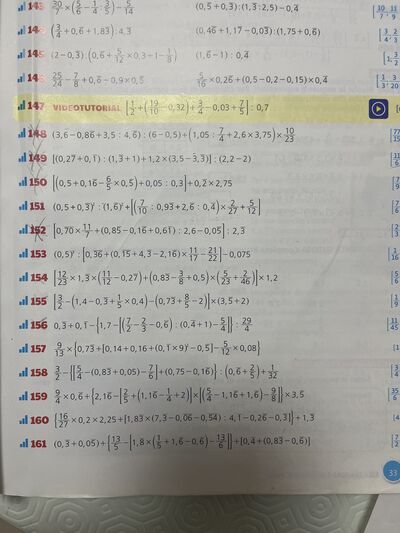 143 20/7 × (5/6 − 1/4 · 3/5) − 5/14 (0,5 + 0,3̅) : (1,3̅ : 2,5) − 0,4̅ [10/7; 11/9
(3/4 + 0,6̅ + 1,83̅) : 4,3̅ (0,46̅ + 1,17 − 0,03̅) : (1,75 + 0,6̅) [3/4; 2/3
145 (2 − 0,3̅) : (0,6̅ + 5/12 × 0,3̅ − 1 − 1/8) (1,6̅ − 1) : 0,4̅ [1; 3/2
146 25/24 − 7/8 + 0,6̅ − 0,9 × 0,5̅ 5/16 × 0,26̅ + (0,5 − 0,2 − 0,15) × 0,4̅ [1/3; 3/20
147 VIDEOTUTORIAL [1/2 + (19/10 − 0,32) + 3/4 − 0,03 + 7/5] : 0,7
148 (3,6 − 0,86̅ + 3,5 : 4,6̅) : (6 − 0,5) + (1,05 : 7/4 + 2,6 × 3,75) × 10/23 [77/15
149 [(0,27̅ + 0,1̅) : (1,3̅ + 1) + 1,2 × (3,5 − 3,3̅)] : (2,2̅ − 2) [11/6
150 [(0,5 + 0,16̅ − 6/5 × 0,5̅) + 0,05̅ : 0,3̅] + 0,2̅ × 2,75 [7/9
151 (0,5 + 0,3̅)² : (1,6̅)² + [(7/10 : 0,93̅ + 2,6̅ : 0,4̅) × 2/27 + 5/12] [7/6
152 [0,70̅ × 11/7 + (0,85 − 0,16̅ + 0,61̅) : 2,6 − 0,05̅] : 2,3̅ [2/3
153 (0,5)² : [0,36̅ + (0,15̅ + 4,3̅ − 2,16̅) × 11/17 − 21/22] − 0,075 [1/16
154 [12/23 × 1,3̅ × (11/12 − 0,27̅) + (0,83̅ − 3/8 + 0,5) × (5/23 + 2/46)] × 1,2 [5/6
155 [3/2 − (1,4 − 0,3̅ + 1/5 × 0,4̅) − (0,73̅ + 8/5 − 2)] × (3,5 + 2) [1/9
156 0,3̅ + 0,1̅ − {1,7 − [(7/2 − 2/3 − 0,6̅) : (0,4̅ + 1) − 5/4]} : 29/4 [11/45
157 9/13 × {0,73̅ + [0,14 + 0,16 + (0,1̅ × 9)² − 0,5] − 5/12 × 0,08} [1
158 3/2 − {[5/4 − (0,83̅ + 0,05̅) − 7/6] + (0,75 − 0,16̅)} : (0,6 + 2/5) + 1/32 [3/4
159 9/4 × 0,6̅ + {2,16̅ − [2/5 + (1,16̅ − 1/4 + 2)] × [(5/4 − 1,16̅ + 1,6̅) − 9/8]} × 3,5 [35/6
160 {16/27 × 0,2 × 2,25 + [1,83̅ × (7,3̅ − 0,06̅ − 0,54̅) : 4,1̅ − 0,26̅ − 0,3̅]} + 1,3̅ [4
161 (0,3̅ + 0,05̅) + {13/5 − [1,8 × (1/5 + 1,6̅ − 0,6) − 13/6]} + [0,4̅ + (0,83̅ − 0,6̅)] [7/2
33